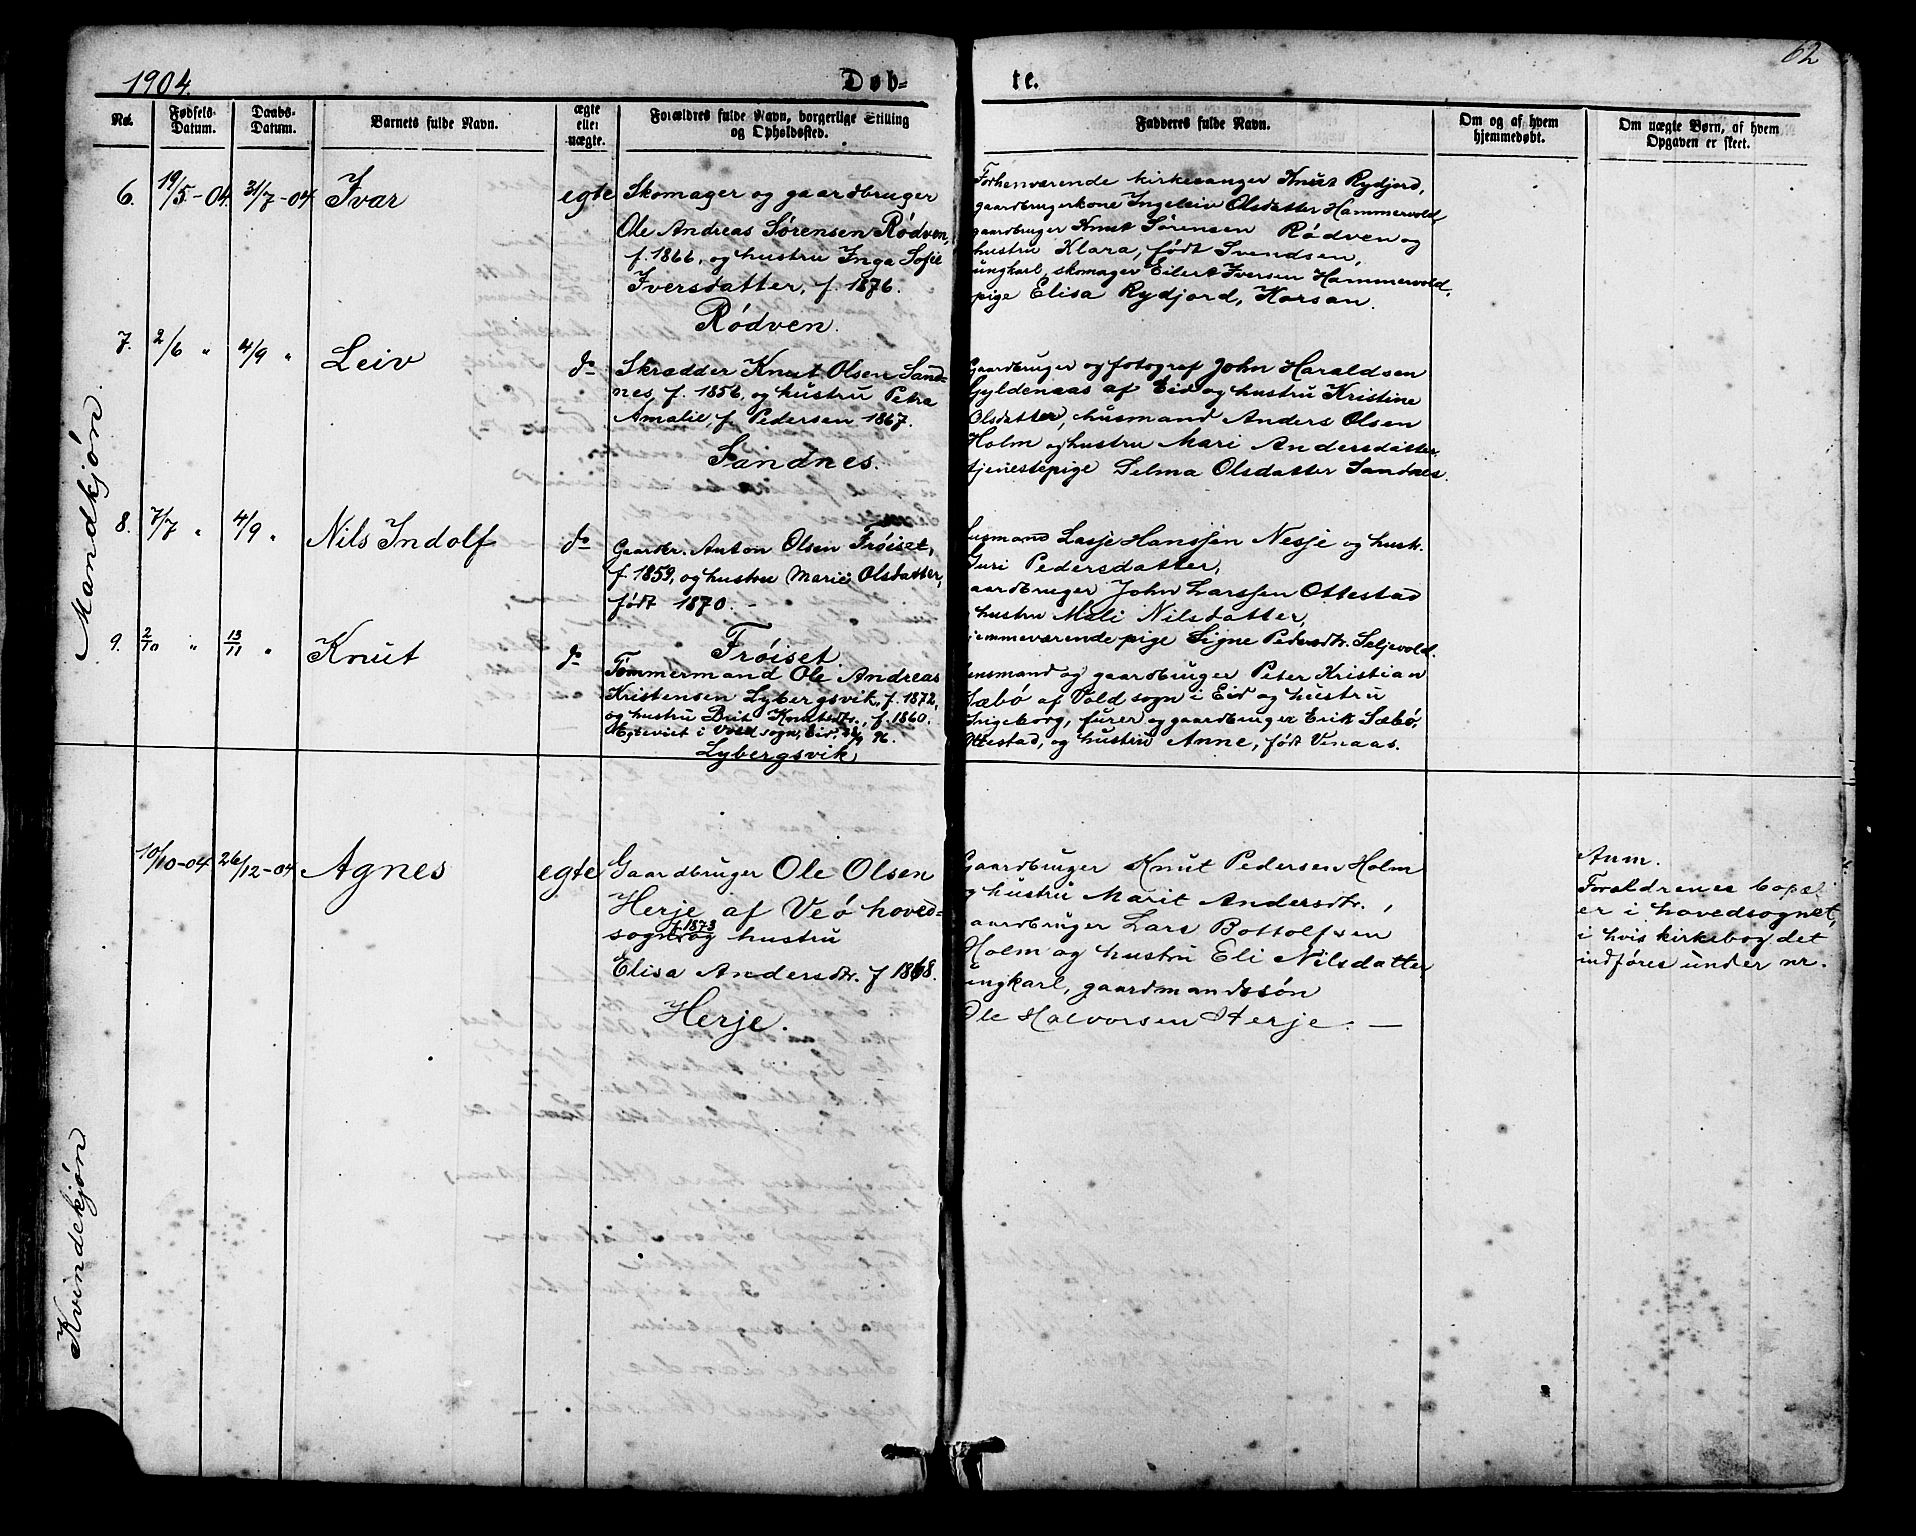 62
1904.
Døb-
te.
No.
Fødsels-
Datum.
Daabs-
Datum.
Barnets fulde Navn.
ægte
eller
uægte.
Forældres fulde Navn, borgerlige Stilling
og Opholdssted.
Fadderes fulde Navn.
Om og af hvem
hjemmedøbt.
Om uægte Børn, af hvem
Opgaven er skeet.
Mandkjøn.
6.
19/5-04.
31/7-04
Ivar
egte
Skomager og gaardbruger
Ole Andreas Sørensen Rødven,
f. 1866, og hustru Inga Sofie
Iversdatter, f. 1876.
Rødven.
Forhenværende kirkesanger Knut Rydjord,
gaardbrugerkone Ingeleiv Olsdatter Hammervold,
gaardbruger Knut Sørensen Rødven og
hustru Klara, født Svendsen,
ungkarl, skomager Eilert Iversen Hammervold,
pige Elisa Rydjord, Korsan.
7.
2/6 "
4/9 "
Leiv
do
Skrædder Knut Olsen Sand-
nes, f. 1856, og hustru Petra
Amalie, f. Pedersen 1867.
Sandnes.
Gaardbruger og fotograf John Haraldsen
Gyldenaas af Eid og hustru Kristine
Olsdatter, husmand Anders Olsen
Holm og hustru Mari Andersdatter,
tjenestepige Selma Olsdatter Sandnes.
8.
7/7 "
4/9 "
Nils Indolf
do
Gaardbr. Anton Olsen Frøiset,
f. 1859, og hustru Marie Olsdatter,
født 1870. -
Frøiset.
usmand Lasse Hanssen Nesje og hustr.
Guri Pedersdatter,
aardbruger John Larssen Ottestad
hustru Mali Nilsdatter,
jemmeværende pige Signe Pedersdtr. Seljevold.
9.
2/10 "
13/11 "
Knut
do
Tømmermand Ole Andreas
Kristensen Lybergsvik, f. 1872,
og hustru Brit Knutsdtr., f. 1860.
Egteviet i Vold sogn, Eid,
Lybergsvik,
ensmand og gaardbruger Peter Kristian
Sæbø af Vold sogn i Eid og hustru
Ingeborg, furer og gaardbruger Erik Sæbø,
Ottestad, og hustru Anne, født Venaas.
Kvindekjøn
10/10-04
26/12-04
Agnes
egte
Gaardbruger Ole Olsen
Herje af Veø hoved-
f. 1873
sogn og hustru
Elisa Andersdtr. f 1868.
Herje.
Gaardbruger Knut Pedersen Holm
og hustru Marit Andersdtr.,
aardbruger Lars Bottolfsen
Holm og hustru Eli Nilsdatter
ungkarl, gaardmandssøn
Ole Halvorsen Herje. —
Anm.
Forældrenes bopæl
er i hovedsognet,
i hvis kirkebog det
indføres under nr.